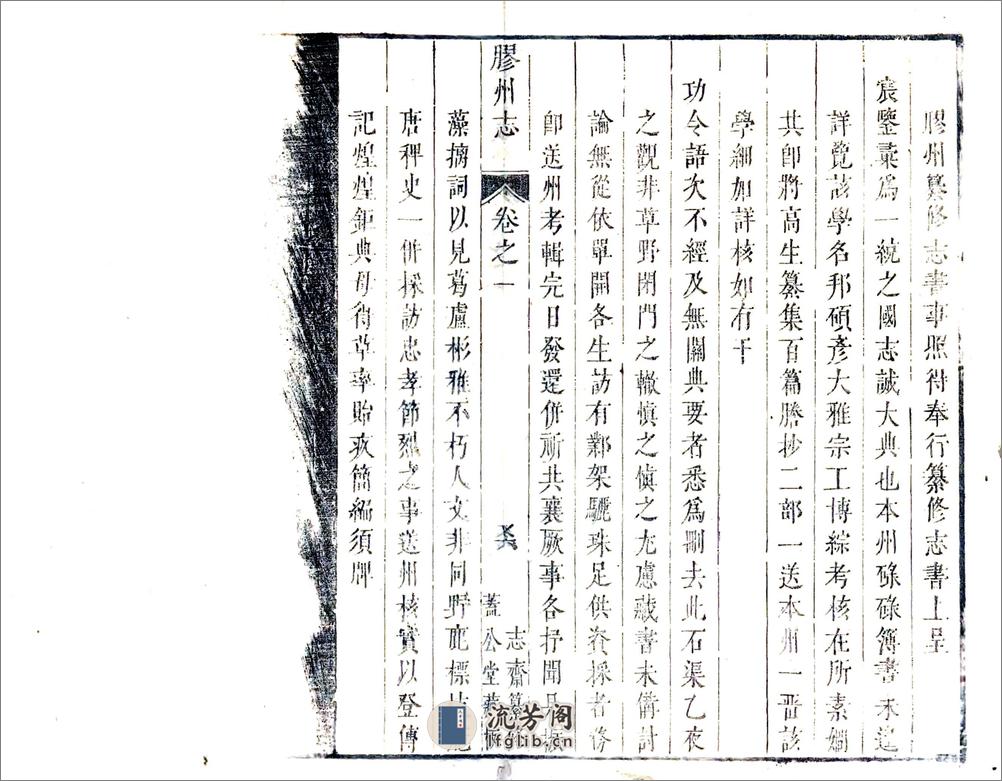 膠州纂修志書事照得奉行纂修志書上呈
宸鑒彙爲一統之國志誠大典也本州碌碌簿書未遑
詳覽該學名邦碩彥大雅宗工博綜考核在所素嫺
共卽將高生纂集百篇謄抄二部一送本州一晋該
學細加詳核如有干
功令語次不經及無關典要者悉爲刪去此石渠乙夜
之觀非草野閉門之轍愼之愼之尤慮藏書未偹討
論無從依單開各生訪有鄴架驪珠足供資採者俻
卽送州考輯完日發還併祈共襄厥事各抒聞見
膠州志 卷之一
志齋纂
蓋公堂藏
藻摛詞以見葛盧彬雅不朽人文非同野鹿標枝
唐稗史一併採訪忠孝節烈之事送州核實以登傳
記煌煌鉅典毋得草率貽玫簡編須牌
流芳阁
fglib.cn